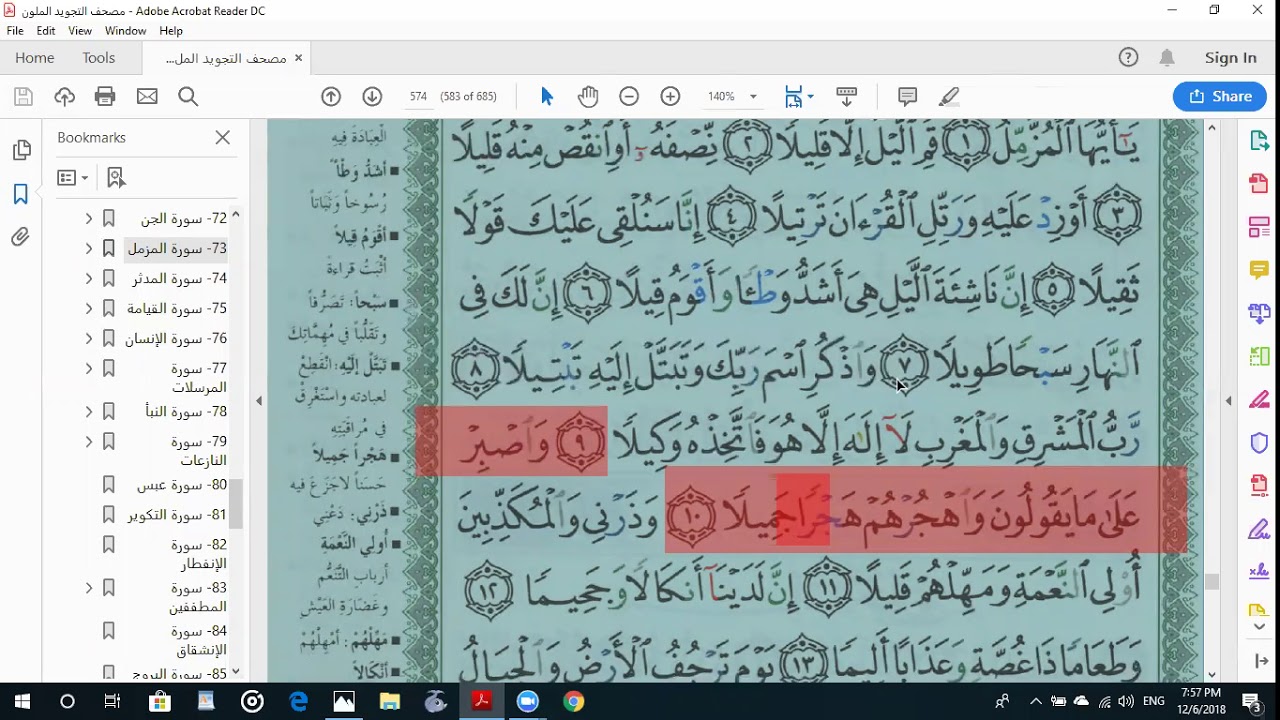 مصحف التجويد الملون - Adobe Acrobat Reader DC
File Edit View Window Help
Home Tools مصحف التجويد المل... ×
Sign In
574 (583 of 685) 140% Share
Bookmarks
72- سورة الجن
73- سورة المزمل
74- سورة المدثر
75- سورة القيامة
76- سورة الإنسان
77- سورة
المرسلات
78- سورة النبأ
79- سورة
النازعات
80- سورة عبس
81- سورة التكوير
82- سورة
الإنفطار
83- سورة
المطففين
84- سورة
الإنشقاق
85- سورة البروج
يَٰٓأَيُّهَا ٱلْمُزَّمِّلُ ١ قُمِ ٱلَّيْلَ إِلَّا قَلِيلًا ٢ نِّصْفَهُۥٓ أَوِ ٱنقُصْ مِنْهُ قَلِيلًا
٣ أَوْ زِدْ عَلَيْهِ وَرَتِّلِ ٱلْقُرْءَانَ تَرْتِيلًا ٤ إِنَّا سَنُلْقِى عَلَيْكَ قَوْلًا
ثَقِيلًا ٥ إِنَّ نَاشِئَةَ ٱلَّيْلِ هِىَ أَشَدُّ وَطْـًٔا وَأَقْوَمُ قِيلًا ٦ إِنَّ لَكَ فِى
ٱلنَّهَارِ سَبْحًا طَوِيلًا ٧ وَٱذْكُرِ ٱسْمَ رَبِّكَ وَتَبَتَّلْ إِلَيْهِ تَبْتِيلًا ٨
رَّبُّ ٱلْمَشْرِقِ وَٱلْمَغْرِبِ لَآ إِلَٰهَ إِلَّا هُوَ فَٱتَّخِذْهُ وَكِيلًا ٩ وَٱصْبِرْ
عَلَىٰ مَا يَقُولُونَ وَٱهْجُرْهُمْ هَجْرًا جَمِيلًا ١٠ وَذَرْنِى وَٱلْمُكَذِّبِينَ
أُو۟لِى ٱلنَّعْمَةِ وَمَهِّلْهُمْ قَلِيلًا ١١ إِنَّ لَدَيْنَآ أَنكَالًا وَجَحِيمًا ١٢
وَطَعَامًا ذَا غُصَّةٍ وَعَذَابًا أَلِيمًا ١٣ يَوْمَ تَرْجُفُ ٱلْأَرْضُ وَٱلْجِبَالُ
الْعِبَادَةَ فِيهِ
■ أَشَدُّ وَطْئاً
رُسُوخاً وَثَبَاتاً
■ أَقْوَمُ قِيلاً
أَثْبَتُ قراءةً
■ سَبْحاً: تَصَرُّفاً
وتَقَلُّباً في مُهِمَّاتِكَ
■ تَبَتَّلْ إِلَيْهِ: انْقَطِعْ
لعبادتِهِ واسْتَغْرِقْ
في مُراقَبَتِهِ
■ هَجْراً جَمِيلاً
حَسَناً لا جَزَعَ فيه
■ ذَرْنِي: دَعْنِي
■ أُولِي النَّعْمَةِ
أربابِ التَّنَعُّمِ
وغَضَارَةِ العَيْشِ
■ مَهِّلْهُمْ: أَمْهِلْهُمْ
■ أَنْكَالاً
ENG
7:57 PM
12/6/2018
3